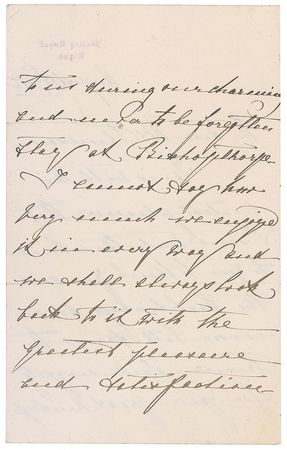 to us during our charming
and never to be forgotten
stay at Bishopthorpe.
I cannot say how
very much we enjoyed
it in every way and
we shall always look
back to it with the
greatest pleasure
and satisfaction